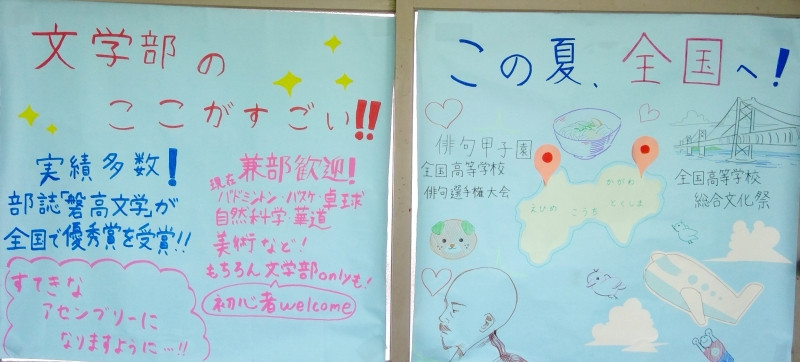 文学部の
ここがすごい!!
実績多数!
部誌「磐高文学」が
全国で優秀賞を受賞!!
すてきな
アセンブリーに
なりますように…!!
兼部歓迎!
現在
バドミントン・バスケ・卓球
自然科学・華道
美術など!
もちろん文学部onlyも!
初心者welcome
この夏、全国へ!
俳句甲子園
全国高等学校
俳句選手権大会
えひめ
こうち
かがわ
とくしま
全国高等学校
総合文化祭